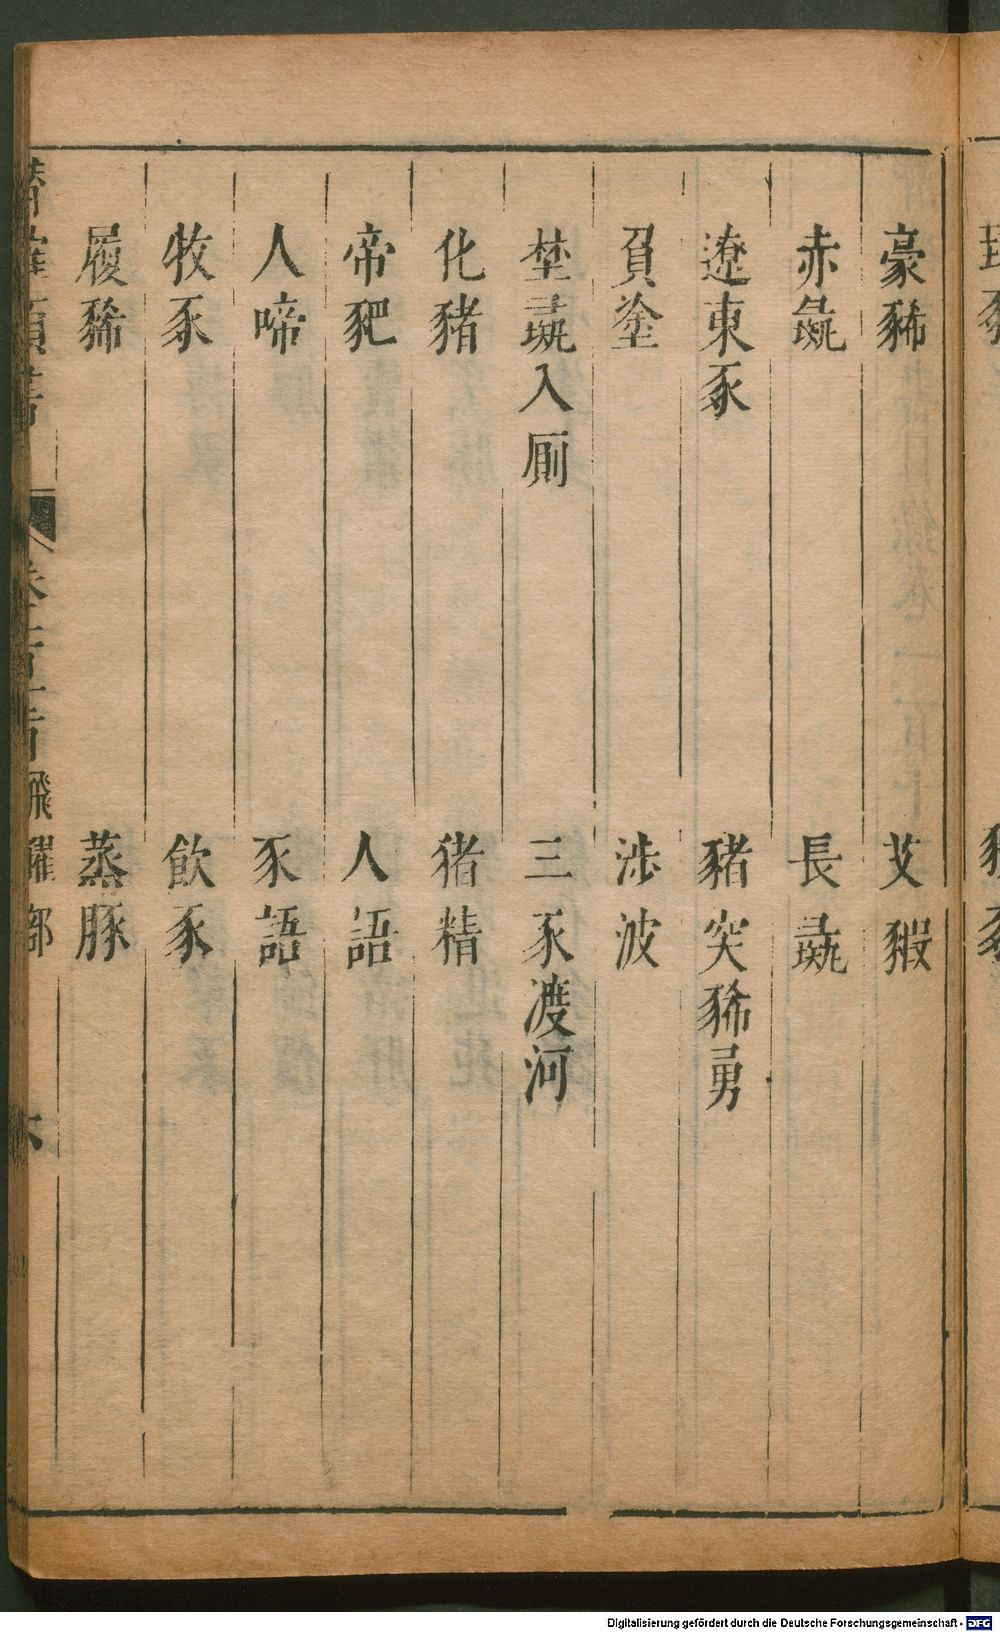 豪豨　艾豭
赤彘　長彘
遼東豕　豬突豨勇
負塗　涉波
埜彘入厠　三豕渡河
化豬　猪精
帝豝　人語
人啼　豕語
牧豕　飲豕
履豨　蒸豚
確類書　飛躍部　六
Digitalisierung gefördert durch die Deutsche Forschungsgemeinschaft - DFG